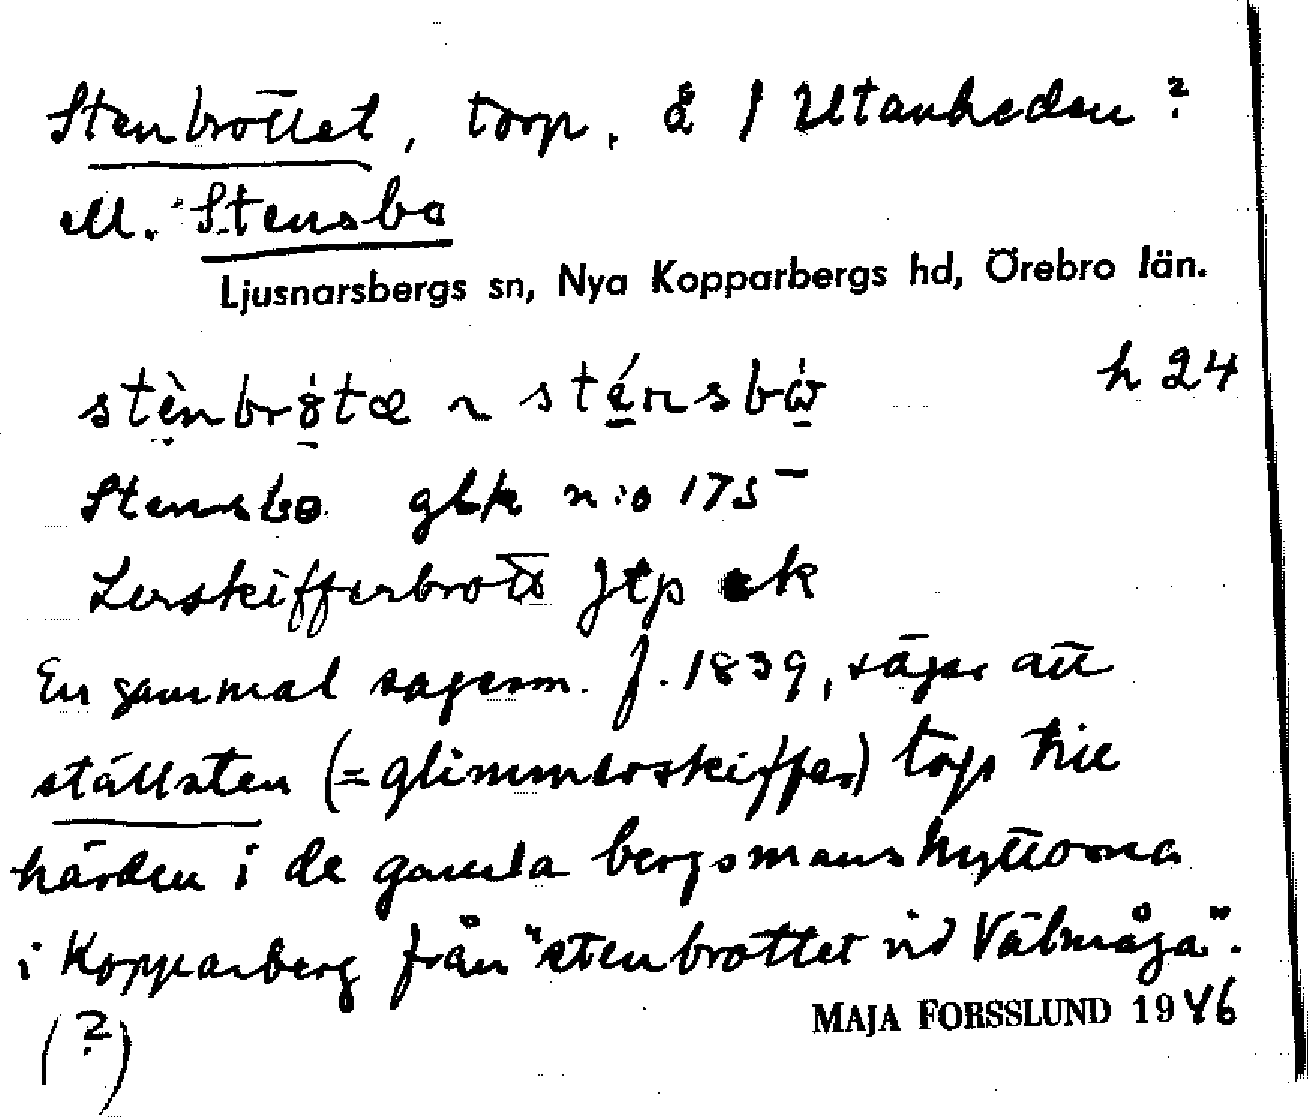 Stenbrottet, torp. å 1 Utanheden?
M. Stensbo
Ljusnarsbergs sn, Nya Kopparbergs hd, Örebro län.
h 24
stènbròtæ ~ sténsbò
Stensbo gbk n:o 175
Lerskifferbrott Jtp ek
En gammal sagesm. f. 1839, säger att
ställsten (= glimmerskiffer) togs till
härden i de gamla bergsmanshyttorna
i Kopparberg från "stenbrottet vid Välmåga".
(?)
MAJA FORSSLUND 1946